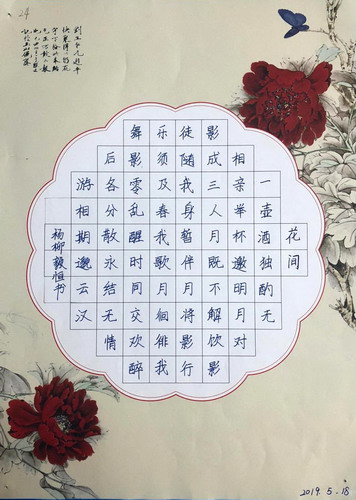 24
花间
一壶酒独酌无
相亲举杯邀明月对
影成三人月既不解饮影
徒随我身暂伴月将影行
乐须及春我歌月徊徘我
舞影零乱醒时同交欢醉
后各分散永结无情
游相期邈云汉
杨柳恒书
2019.5.18